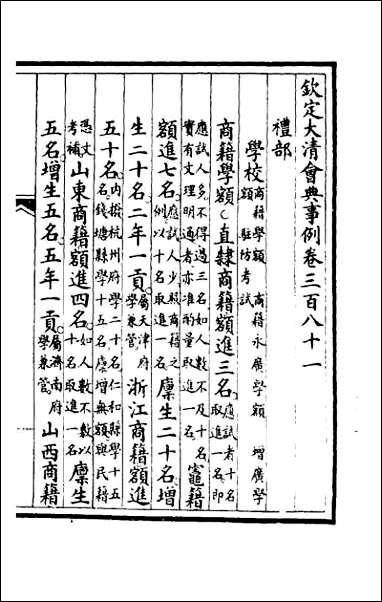 欽定大清會典事例卷三百八十一
禮部
學校商籍學額 商籍永廣學額 增廣學額 駐防考試
商籍學額直隸商籍額進三名應試者十名取進一名即
應試人多不得過三名如人數不及十名實有文理明通者亦准酌量取進一名竈籍
額進七名應試人少照商籍之例以十名取進一名廩生二十名增
生二十名二年一貢屬天津府學兼管浙江商籍額進
五十名內撥杭州府學二十名仁和縣學十五名錢塘縣學十五名廩增無額與民籍
憑文考補山東商籍額進四名如人數不敷以十名取進一名廩生
五名增生五名五年一貢屬濟南府學兼管山西商籍